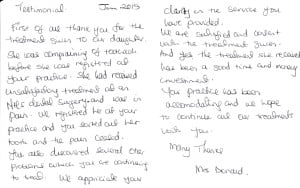 Testimonial Jan 2015
First of all thank you for the
treatment given to our daughter.
She was complaining of toothache
before she was registered at
your practice. She had received
unsatisfactory treatment at an
NHS dental surgery and was in
pain. We registered her at your
practice and you sorted out her
tooth and the pain ceased.
You also discovered several other
problems which you are continuing
to treat. We appreciate your
clarity in the service you
have provided.
We are satisfied and content
with the treatment given.
And feel the treatment she received
has been a good time and money
investment.
Your practice has been
accommodating and we hope
to continue all our treatment
with you.
Many Thanks
Mrs